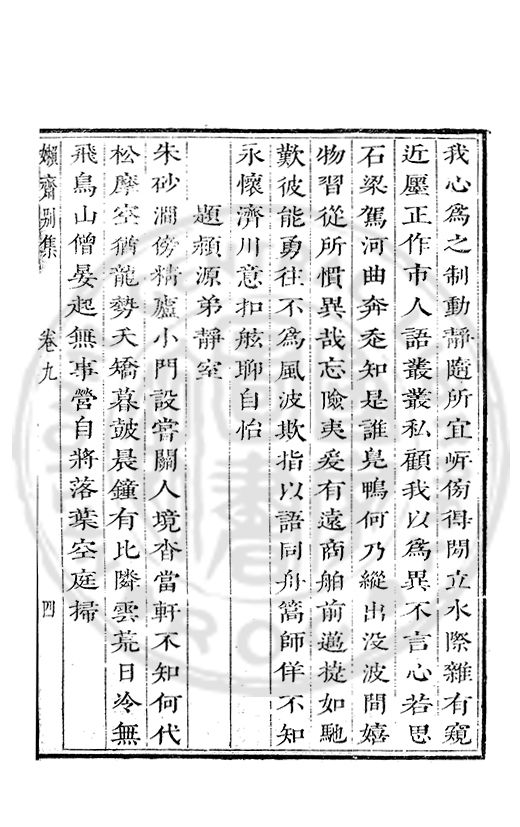 我心為之制動靜隨所宜岍傍得閒立水際雜有窺
近壓正作市人語叢叢私顧我以為異不言心若思
石梁駕河曲奔走知是誰鳧鴨何乃縱出没波間嬉
物習從所慣異哉忘險夷爰有遠商舶前邁捷如馳
歎彼能勇往不為風波欺指以語同舟篙師佯不知
永懷濟川意扣舷聊自怡
題穎源弟靜室
朱砂澗傍精廬小門設嘗關人境杳當軒不知何代
松摩空猶龍勢夭矯暮皷晨鐘有比隣雲荒日冷無
飛鳥山僧晏起無事營自將落葉空庭掃
嬾齋别集
卷九
四